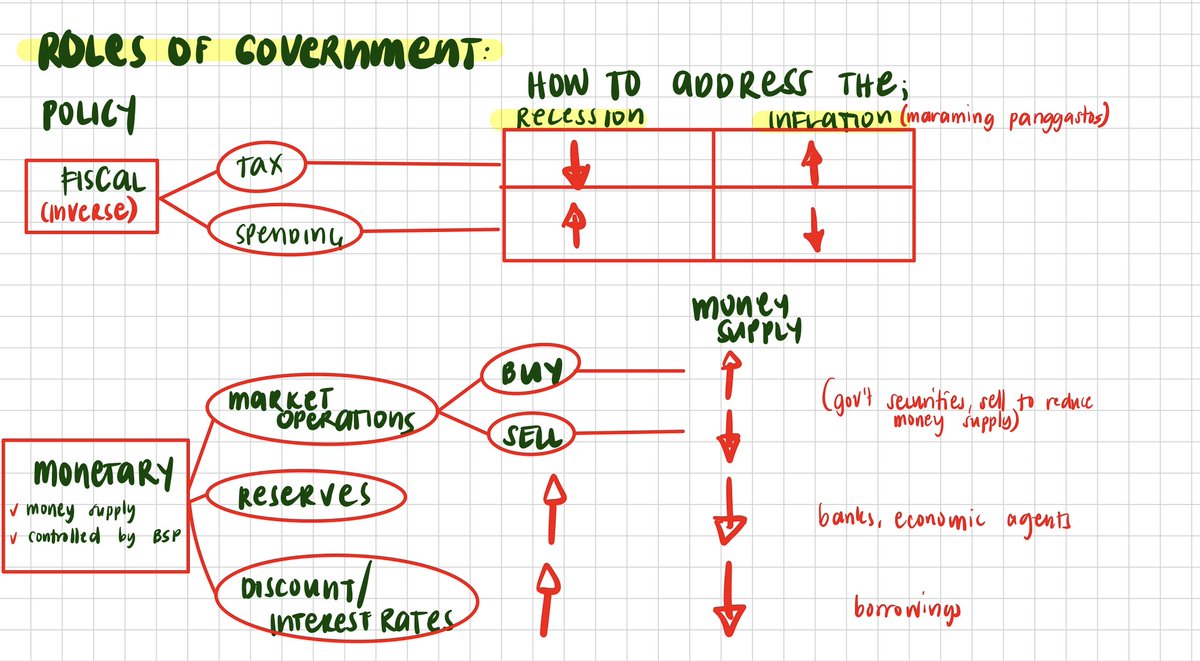 ROLES OF GOVERNMENT:
HOW TO ADDRESS THE;
POLICY
RECESSION
INFLATION (maraming panggastos)
FISCAL
(INVERSE)
TAX
SPENDING
MONEY
SUPPLY
MARKET
OPERATIONS
BUY
SELL
(gov't securities, sell to reduce
money supply)
MONETARY
✓ money supply
✓ controlled by BSP
RESERVES
banks, economic agents
DISCOUNT/
INTEREST RATES
borrowings